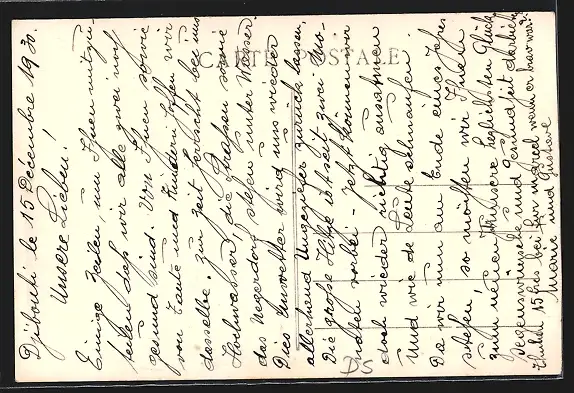 Djibouti le 15 Décembre 1930.
Unsere Lieben!
Einige Zeilen, um Ihnen mitzu-
teilen daß wir alle zwei noch
gesund sind. Von Ihnen sowie
von Tante und Kindern hoffen wir
dasselbe. Zur Zeit herrscht bei uns
Hochwasser, die Straßen sowie
das Negerdorf stehen unter Wasser.
Dies Unwetter wird uns wieder
allerhand Ungeziefer zurück lassen.
Die große Hitze ist seit zwei Mo-
naten vorbei. Jetzt können wir
doch wieder richtig ausatmen
und wie die Leute schnaufen.
Da wir nun am Ende eines Jahres
stehen, so möchten wir Ihnen
zum neuen Jahr unsere herzlichsten Glück-
Segenswünsche und Gesundheit darbieten.
15 frs bei für Marcel wenn er brav war.
Marie und Gustave
CARTE POSTALE
DS